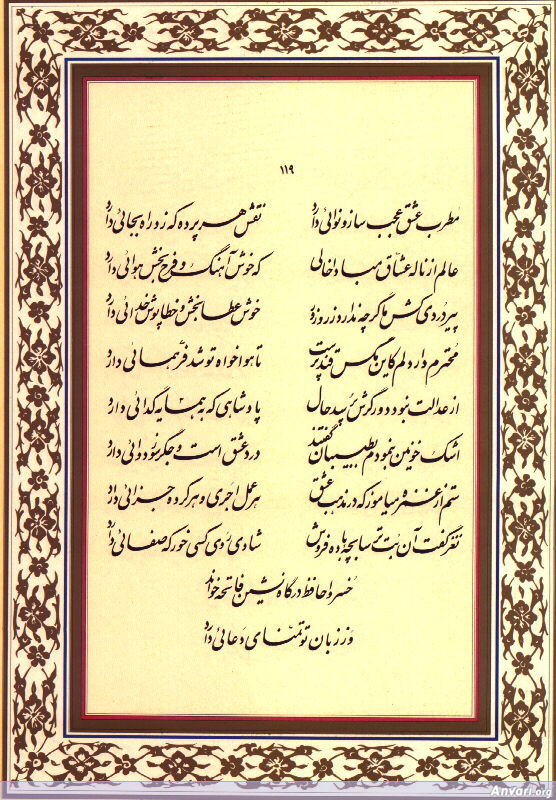 ۱۱۹
مطرب عشق عجب ساز و نوائی دارد نقش هر پرده که زد راه بجائی دارد
عالم از ناله عشاق مبادا خالی که خوش آهنگ و فرح بخش هوائی دارد
پیر دردی کش ما گرچه ندارد زر و زور خوش عطابخش و خطاپوش خدائی دارد
محترم دار دلم کاین مگس قندپرست تا هواخواه تو شد فر همائی دارد
از عدالت نبود دور گرش پرسد حال پادشاهی که به همسایه گدائی دارد
اشک خونین بنمودم بطبیبان گفتند درد عشق است و جگرسوز دوائی دارد
ستم از غمزه میاموز که در مذهب عشق هر عمل اجری و هر کرده جزائی دارد
نغز گفت آن بت ترسابچه باده فروش شادی روی کسی خور که صفائی دارد
خسروا حافظ درگاه نشین فاتحه خواند
وز زبان تو تمنای دعائی دارد
Anvari.org